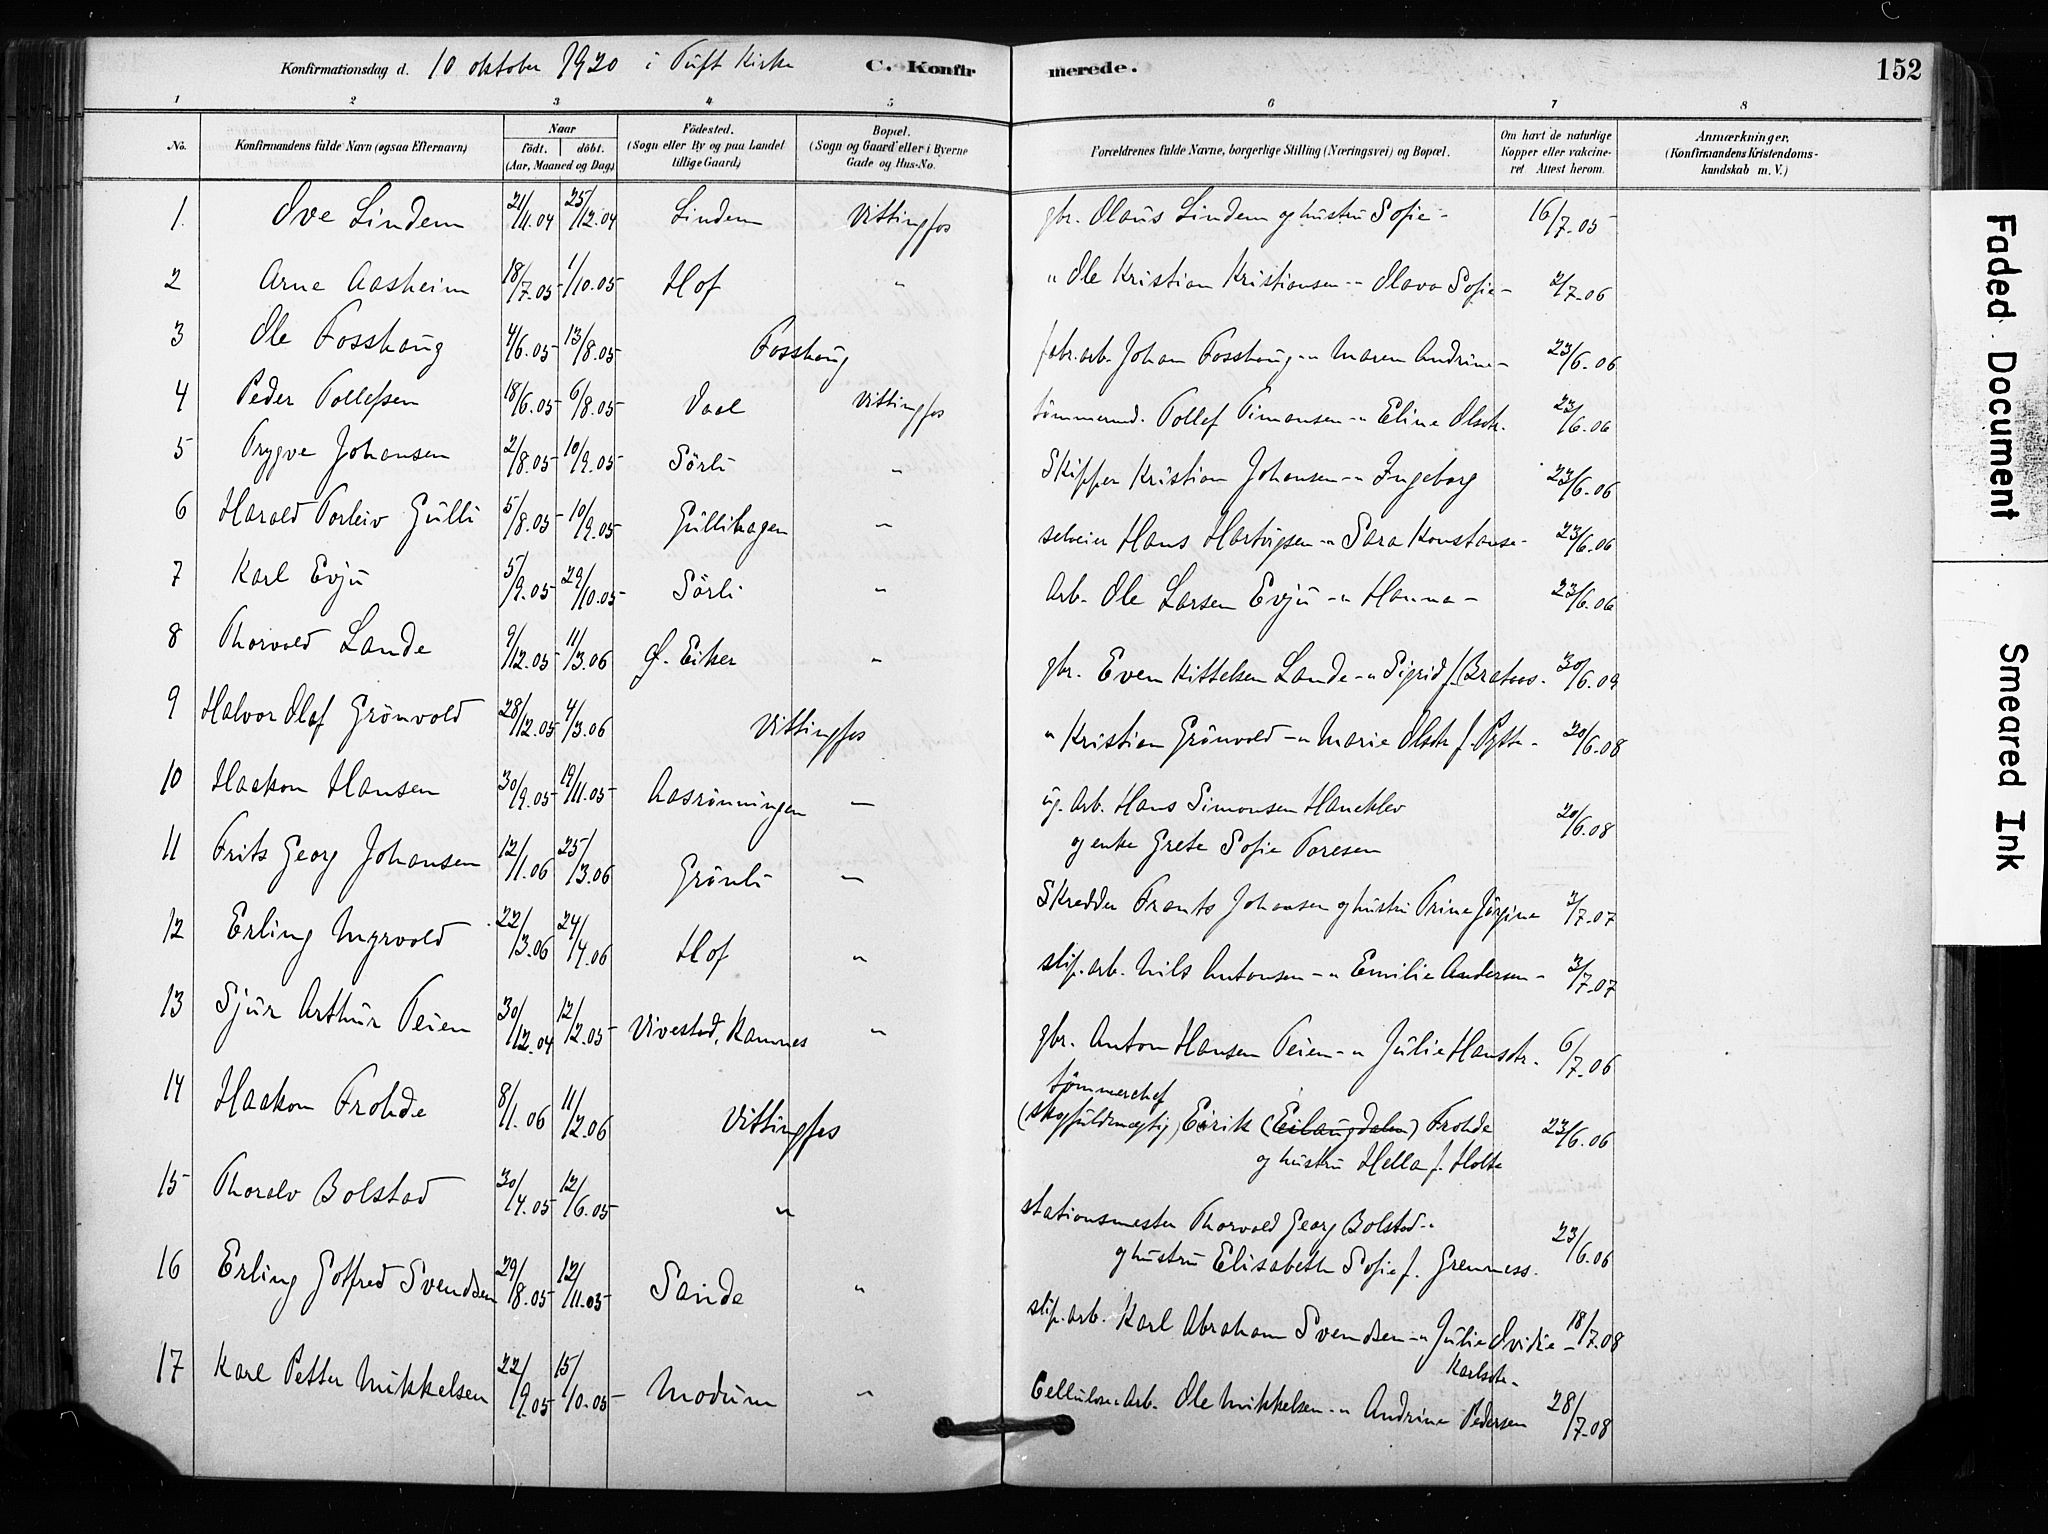 Konfirmationsdag d. 10 oktober 1920 i Tuft Kirke C. Konfirmerede. 152
1 2 3 4 5 6 7 8
No. Konfirmandens fulde Navn (ogsaa Efternavn) Naar født. døbt. (Aar, Maaned og Dag) Födested. (Sogn eller By og paa Landet tillige Gaard) Bopæl. (Sogn og Gaard eller i Byerne Gade og Hus-No. Forældrenes fulde Navne, borgerlige Stilling (Næringsvei) og Bopæl. Om havt de naturlige Kopper eller vakcineret Attest herom. Anmærkninger, (Konfirmandens Kristendomskundskab m. V.)
1. Ove Lindem 21/11.04 25/12.04 Lindem Vittingfos gbr. Olaus Lindem og hustru Sofie - 16/7-05
2 Arne Aasheim 18/7.05 1/10.05 Hof " " Ole Kristian Kristiansen -"- Olava Sofie - 2/7-06
3 Ole Fosshaug 4/6.05 13/8.05 Fosshaug fabr.arb. Johan Fosshaug -"- Maren Andrine - 23/6.06
4 Peder Tollefsen 18/6.05 6/8.05 Vaal Vittingfos tömmermd. Tollef Timansen -"- Eline Olsdtr. 23/6.06
5 Trygve Johansen 2/8.05 10/9.05 Sörli " Skipper Kristian Johansen -"- Ingeborg 23/6.06
6 Harald Torleiv Gulli 5/8.05 10/9.05 Gullihagen " selveier Hans Hartvigsen -"- Sara Konstanse - 23/6.06
7 Karl Evju 5/9.05 29/10.05 Sörli " Arb. Ole Larsen Evju -"- Hanna - 23/6.06
8 Thorvald Lande 9/12.05 11/3.06 Ø. Eiker " gbr. Even Kittelsen Lande -"- Sigrid f. Brataas - 30/6.09
9 Halvor Olaf Grönvold 28/12.05 4/3.06 Vittingfos " Kristian Grönvold -"- Marie Olsdtr f. - 20/6.08
10 Haakon Hansen 30/9.05 19/11.05 Aasrönningen — ug. arb. Hans Simonsen Haneklev 20/6.08
og enke Grete Sofie Toresen
11 Frits Georg Johansen 12/1.06 25/3.06 Grönli — Skredder Frants Johansen og hustru Trine Jörgine 3/7.07
12 Erling Myrvold 22/3.06 24/4.06 Hof " slip. arb. Nils Antonsen -"- Emilie Andersen - 3/7.07
13 Sjur Arthur Teien 30/12.04 12/2.05 Vivestad, Ramnes " gbr. Anton Hansen Teien -"- Julie Hansdtr. 6/7.06
tömmerchef
14 Haakon Frohde 8/1.06 11/2.06 Vittingfos (skogfuldmægtig) Eirik (Eilaugdalen) Frohde 23/6.06
og hustru Hella f. Holte
15 Thoralv Bolstad 30/4.05 12/6.05 " stationsmester Thorvald Georg Bolstad -"
og hustru Elisabeth Sofie f. Grenness. 23/6.06
16 Erling Gotfred Svendsen 29/8.05 12/11.05 Sande " slip. arb. Karl Abraham Svendsen -"- Julie Ovidie - 18/7.08
Karlsdtr -
17 Karl Petter Mikkelsen 22/9.05 15/10.05 Modum " Cellulosearb. Ole Mikkelsen -"- Andrine Pedersen 28/7.08
Faded Document
Smeared Ink